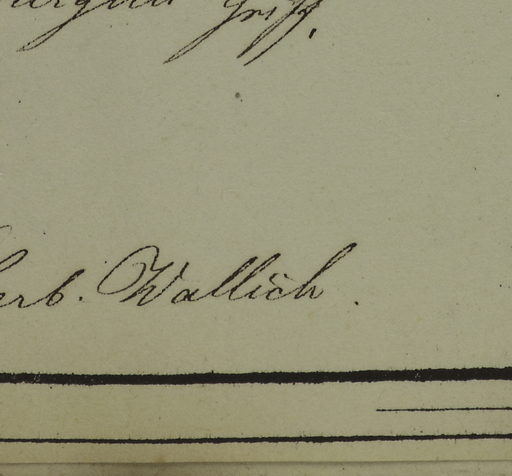 Griff.
erb. Wallich.